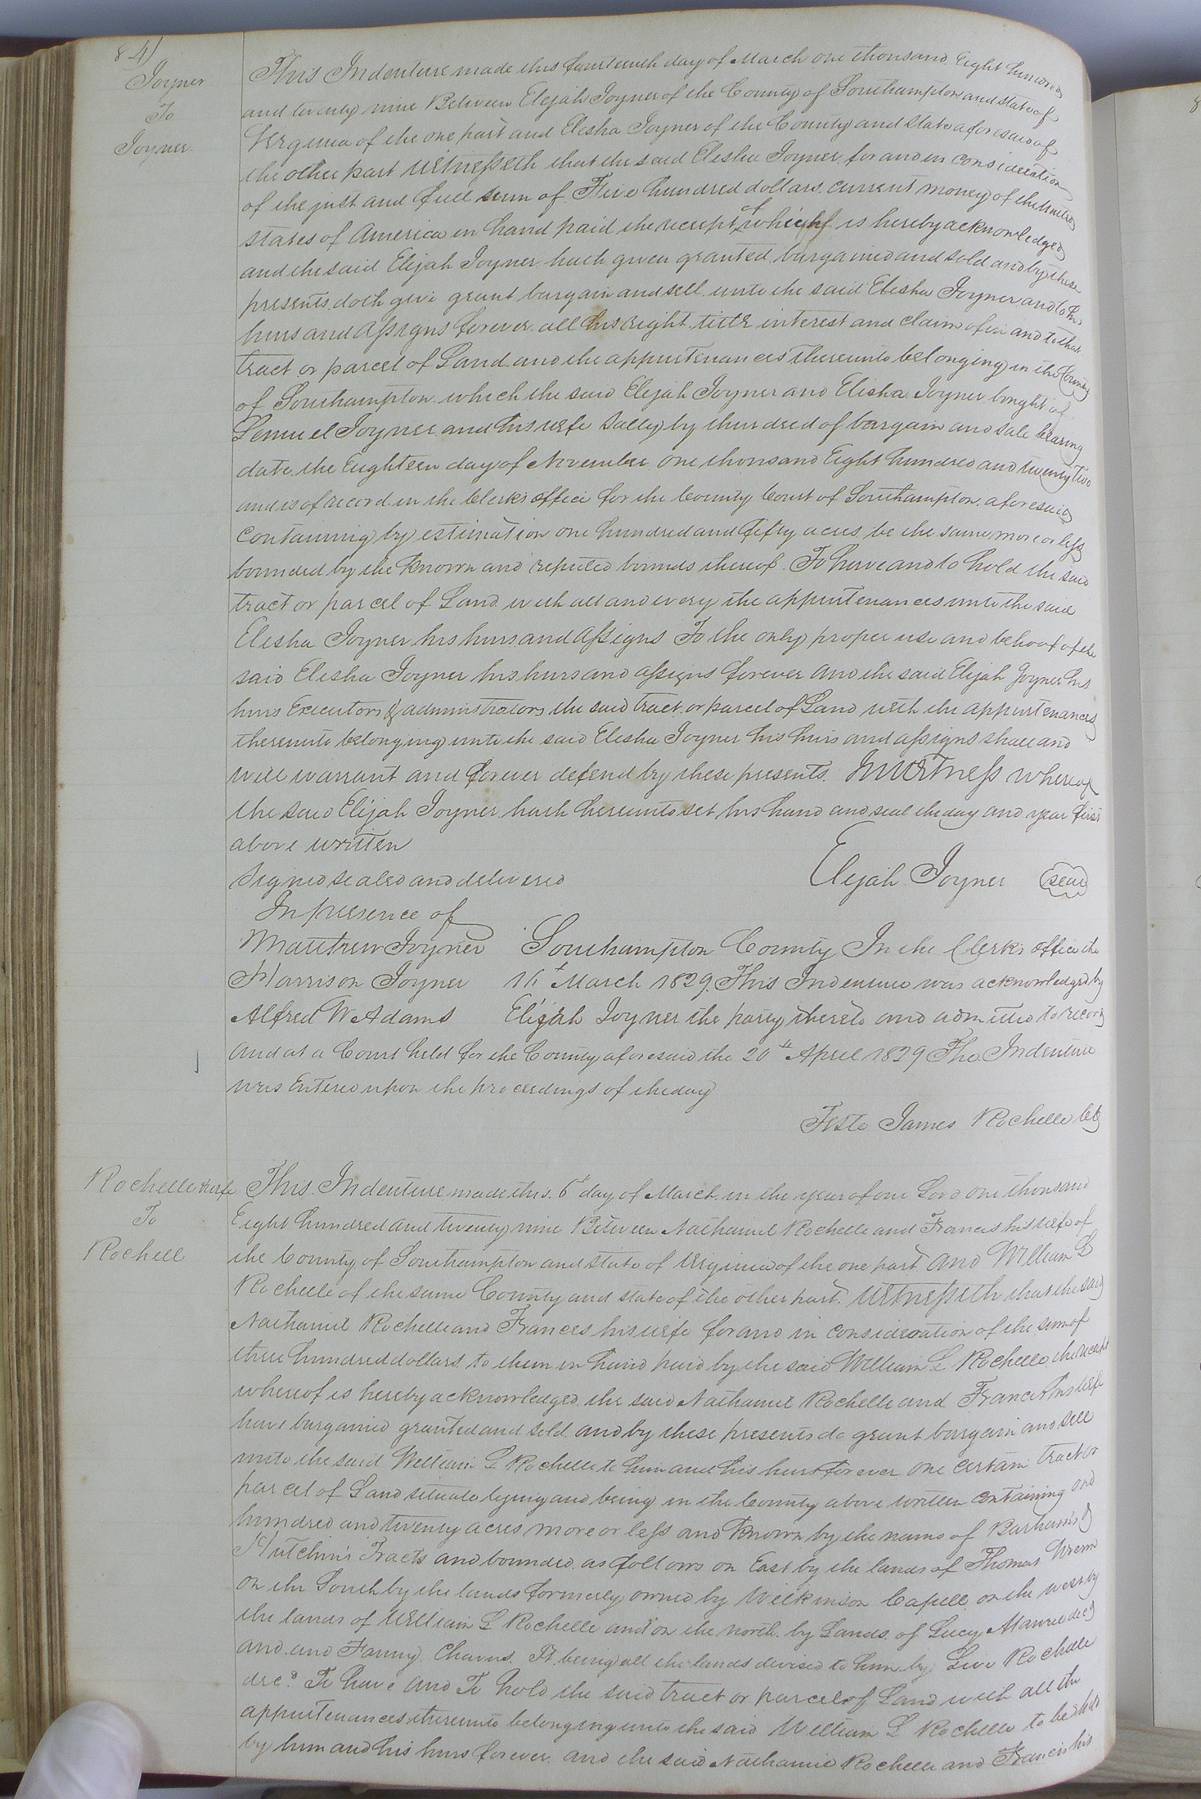 84)
Joyner
To
Joyner
This Indenture made this fourteenth day of March one thousand Eight hundred
and twenty nine Between Elijah Joyner of the County of Southampton and state of
Virginia of the one part and Elisha Joyner of the County and state aforesaid of
the other part Witnesseth that the said Elisha Joyner for and in consideration
of the just and full sum of Five hundred dollars current money of the United
states of America in hand paid the receipt of which is hereby acknowledged
and the said Elijah Joyner hath given granted bargained and sold and by these
presents doth give grant bargain and sell unto the said Elisha Joyner and to his
heirs and assigns forever all his right title interest and claim of in and to that
tract or parcel of Land and the appurtenances thereunto belonging in the County
of Southampton which the said Elijah Joyner and Elisha Joyner bought of
Lemuel Joyner and his wife Sally by their deed of bargain and sale bearing
date the Eighteen day of November one thousand Eight hundred and twenty two
and is of record in the Clerks office for the County Court of Southampton aforesaid
Containing by estimation one hundred and fifty acres be the same more or less
bounded by the known and reputed bounds thereof. To have and to hold the said
tract or parcel of Land with all and every the appurtenances unto the said
Elisha Joyner his heirs and assigns To the only proper use and behoof of the
said Elisha Joyner his heirs and assigns forever and the said Elijah Joyner his
heirs Executors & administrators the said tract or parcel of Land with the appurtenances
thereunto belonging unto the said Elisha Joyner his heirs and assigns shall and
will warrant and forever defend by these presents. In witness whereof
the said Elijah Joyner hath hereunto set his hand and seal the day and year first
above written
Signed sealed and delivered Elijah Joyner seal
In presence of
Matthew Joyner Southampton County In the Clerks office the
Harrison Joyner 16t March 1829. This Indenture was acknowledged by
Alfred W Adams Elijah Joyner the party thereto and admitted to record
And at a Court held for the County aforesaid the 20th April 1829 The Indenture
was Entered upon the proceedings of the day
Teste James Rochelle clk
Rochelle & wife
To
Rochell
This Indenture made this 6t day of March in the year of our Lord one thousand
Eight hundred and twenty nine Between Nathaniel Rochelle and Francis his wife of
the County of Southampton and state of Virginia of the one part and William L
Rochelle of the same County and state of the other part. Witnesseth that the said
Nathaniel Rochelle and Frances his wife for and in consideration of the sum of
three hundred dollars to them in hand paid by the said William L Rochelle the receipt
whereof is hereby acknowledged the said Nathaniel Rochelle and Francis his wife
have bargained granted and sold and by these presents do grant bargain and sell
unto the said William L Rochelle to him and his heirs forever one certain tract or
parcel of Land situate lying and being in the County above written containing one
hundred and twenty acres more or less and known by the name of Barham's &
Hutchin's Tracts and bounded as follows on East by the lands of Thomas Wrenn
on the South by the lands formerly owned by Wilkinson Capell on the west by
the lands of William L Rochelle and on the north by Lands of Lucy decd
and and Fanny It being all the lands devised to him by Levi Rochelle
decd. To have and To hold the said tract or parcel of Land with all the
appurtenances thereunto belonging unto the said William L Rochelle to be held
by him and his heirs forever and the said Nathaniel Rochelle and Francis his